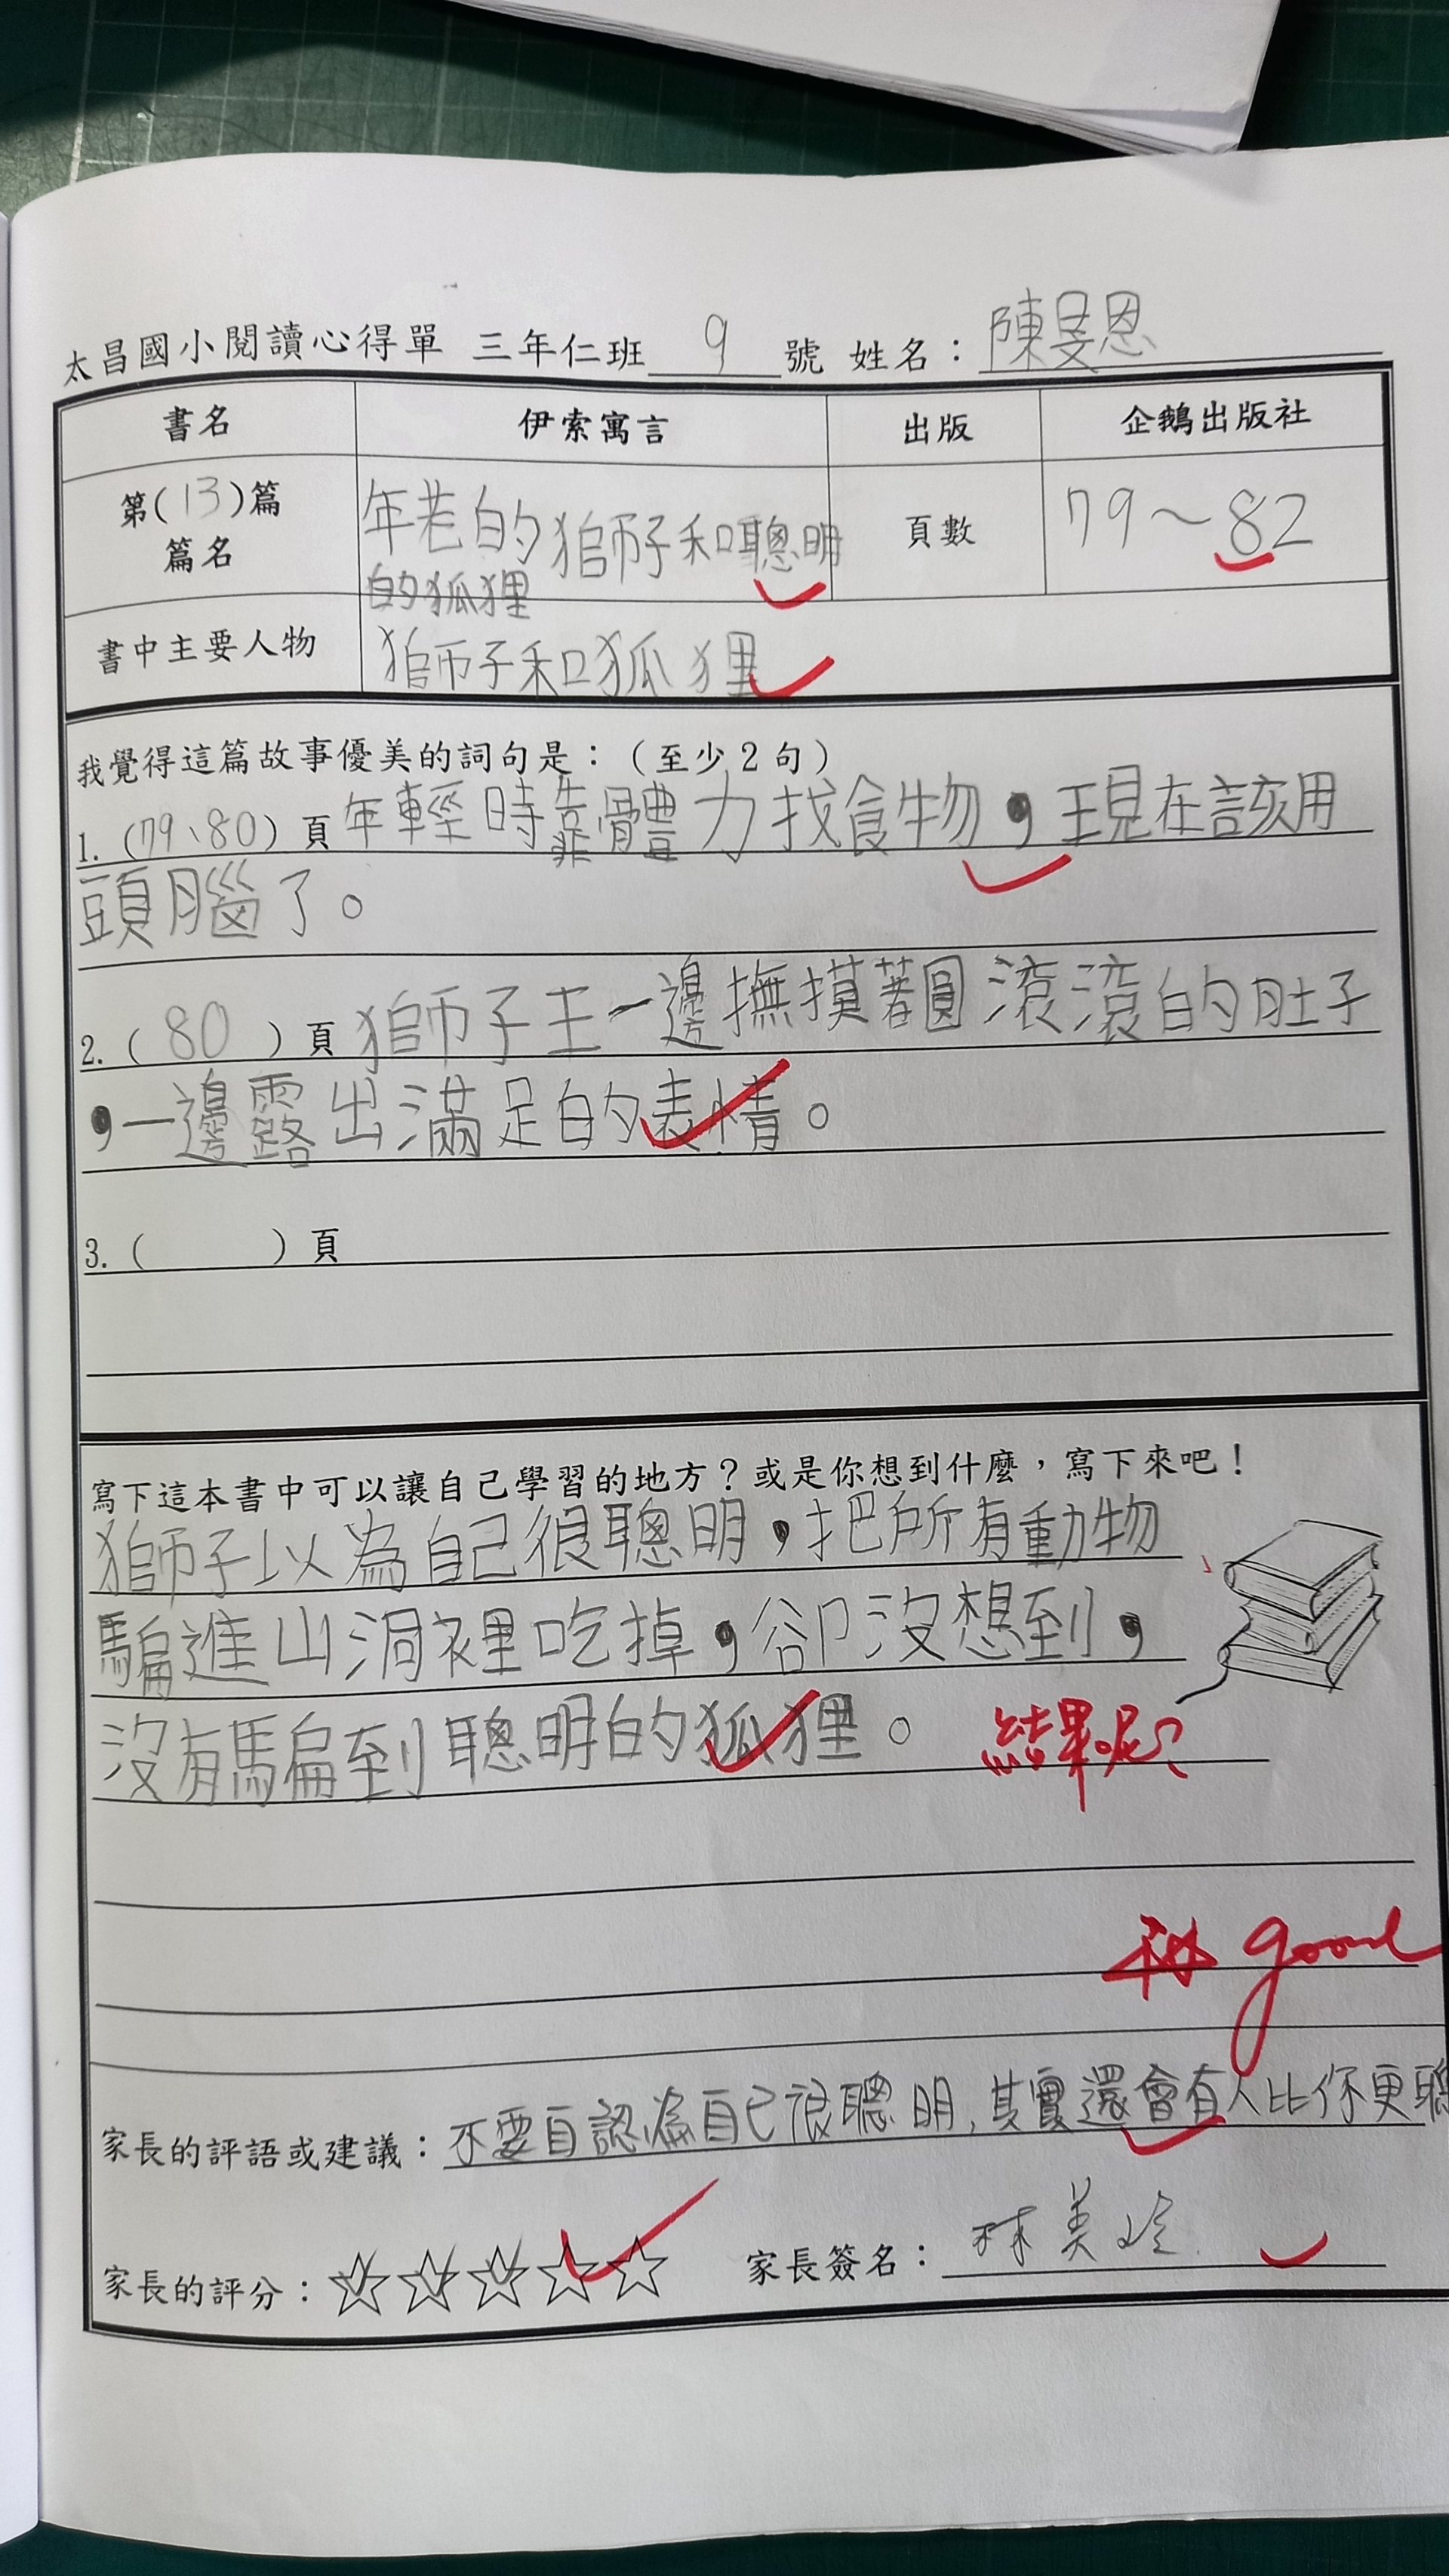 太昌國小閱讀心得單 三年仁班 9 號 姓名：陳旻恩
書名 伊索寓言 出版 企鵝出版社
第(13)篇 篇名 年老的獅子和聰明 頁數 79～82
的狐狸
書中主要人物 獅子和狐狸
我覺得這篇故事優美的詞句是：（至少2句）
1.（79、80）頁 年輕時靠體力找食物，現在該用
頭腦了。
2.（80）頁 獅子王一邊撫摸著圓滾滾的肚子
，一邊露出滿足的表情。
3.（ ）頁
寫下這本書中可以讓自己學習的地方？或是你想到什麼，寫下來吧！
獅子以為自己很聰明，把所有動物
騙進山洞裡吃掉，卻沒想到，
沒有騙到聰明的狐狸。 結果呢？
good
家長的評語或建議：不要自認為自己很聰明，其實還會有人比你更聰
家長的評分：☆☆☆☆☆ 家長簽名：林美玲